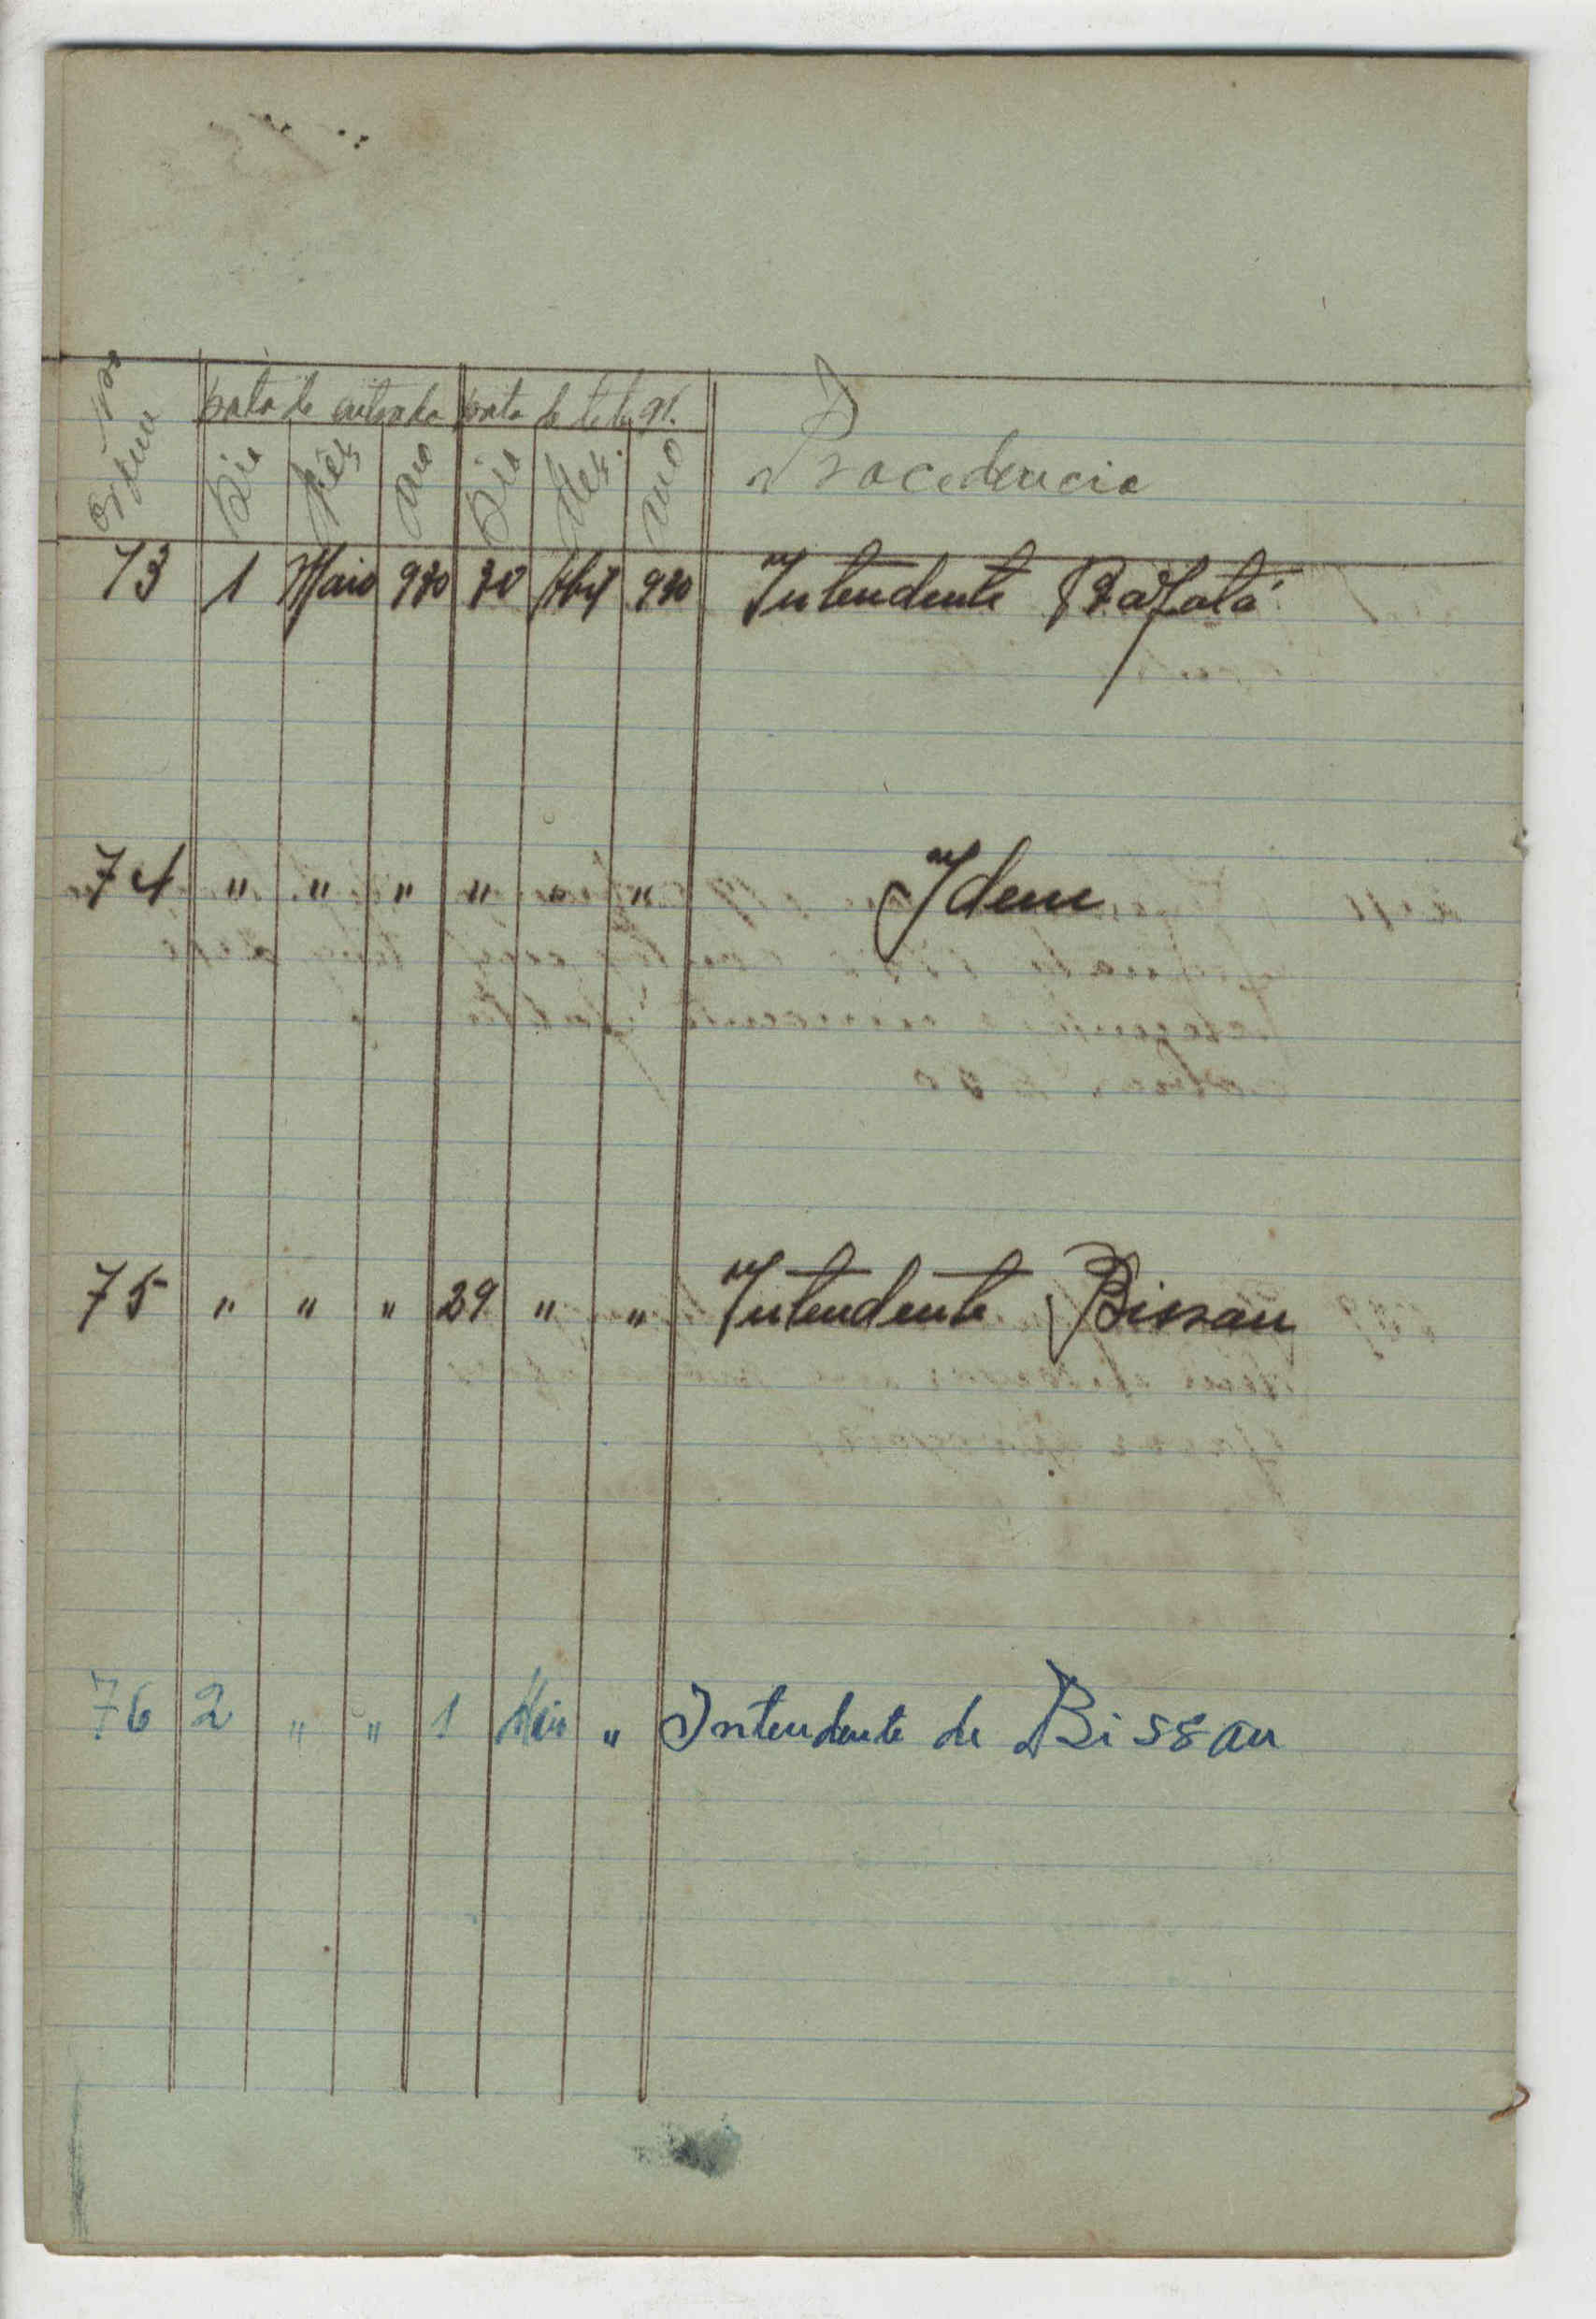 Nos Ordem Data de entrada Data de telegr. Procedencia
Dia Mês Ano Dia Mês. Ano
73 1 Maio 930 30 Abril 930 Intendente Bafatá
74 " " " " " " Idem
75 " " " 29 " " Intendente Bissau
76 2 " " 1 Maio " Intendente de Bissau